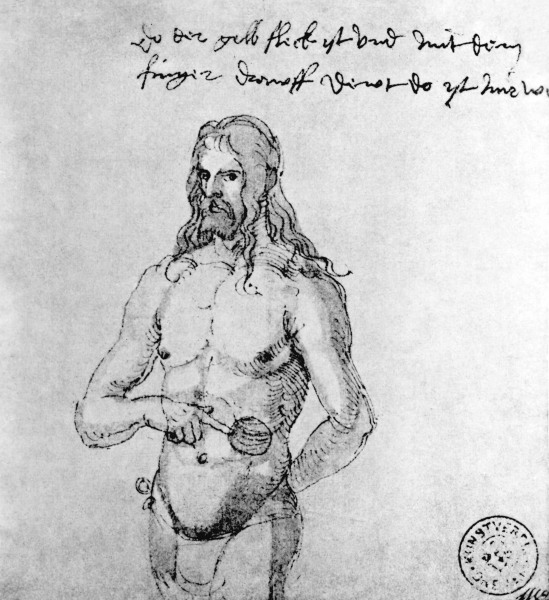 Do der gelb fleck yst vnd mit dem
finger drawff dewt do yst mir we
KUNSTVEREI